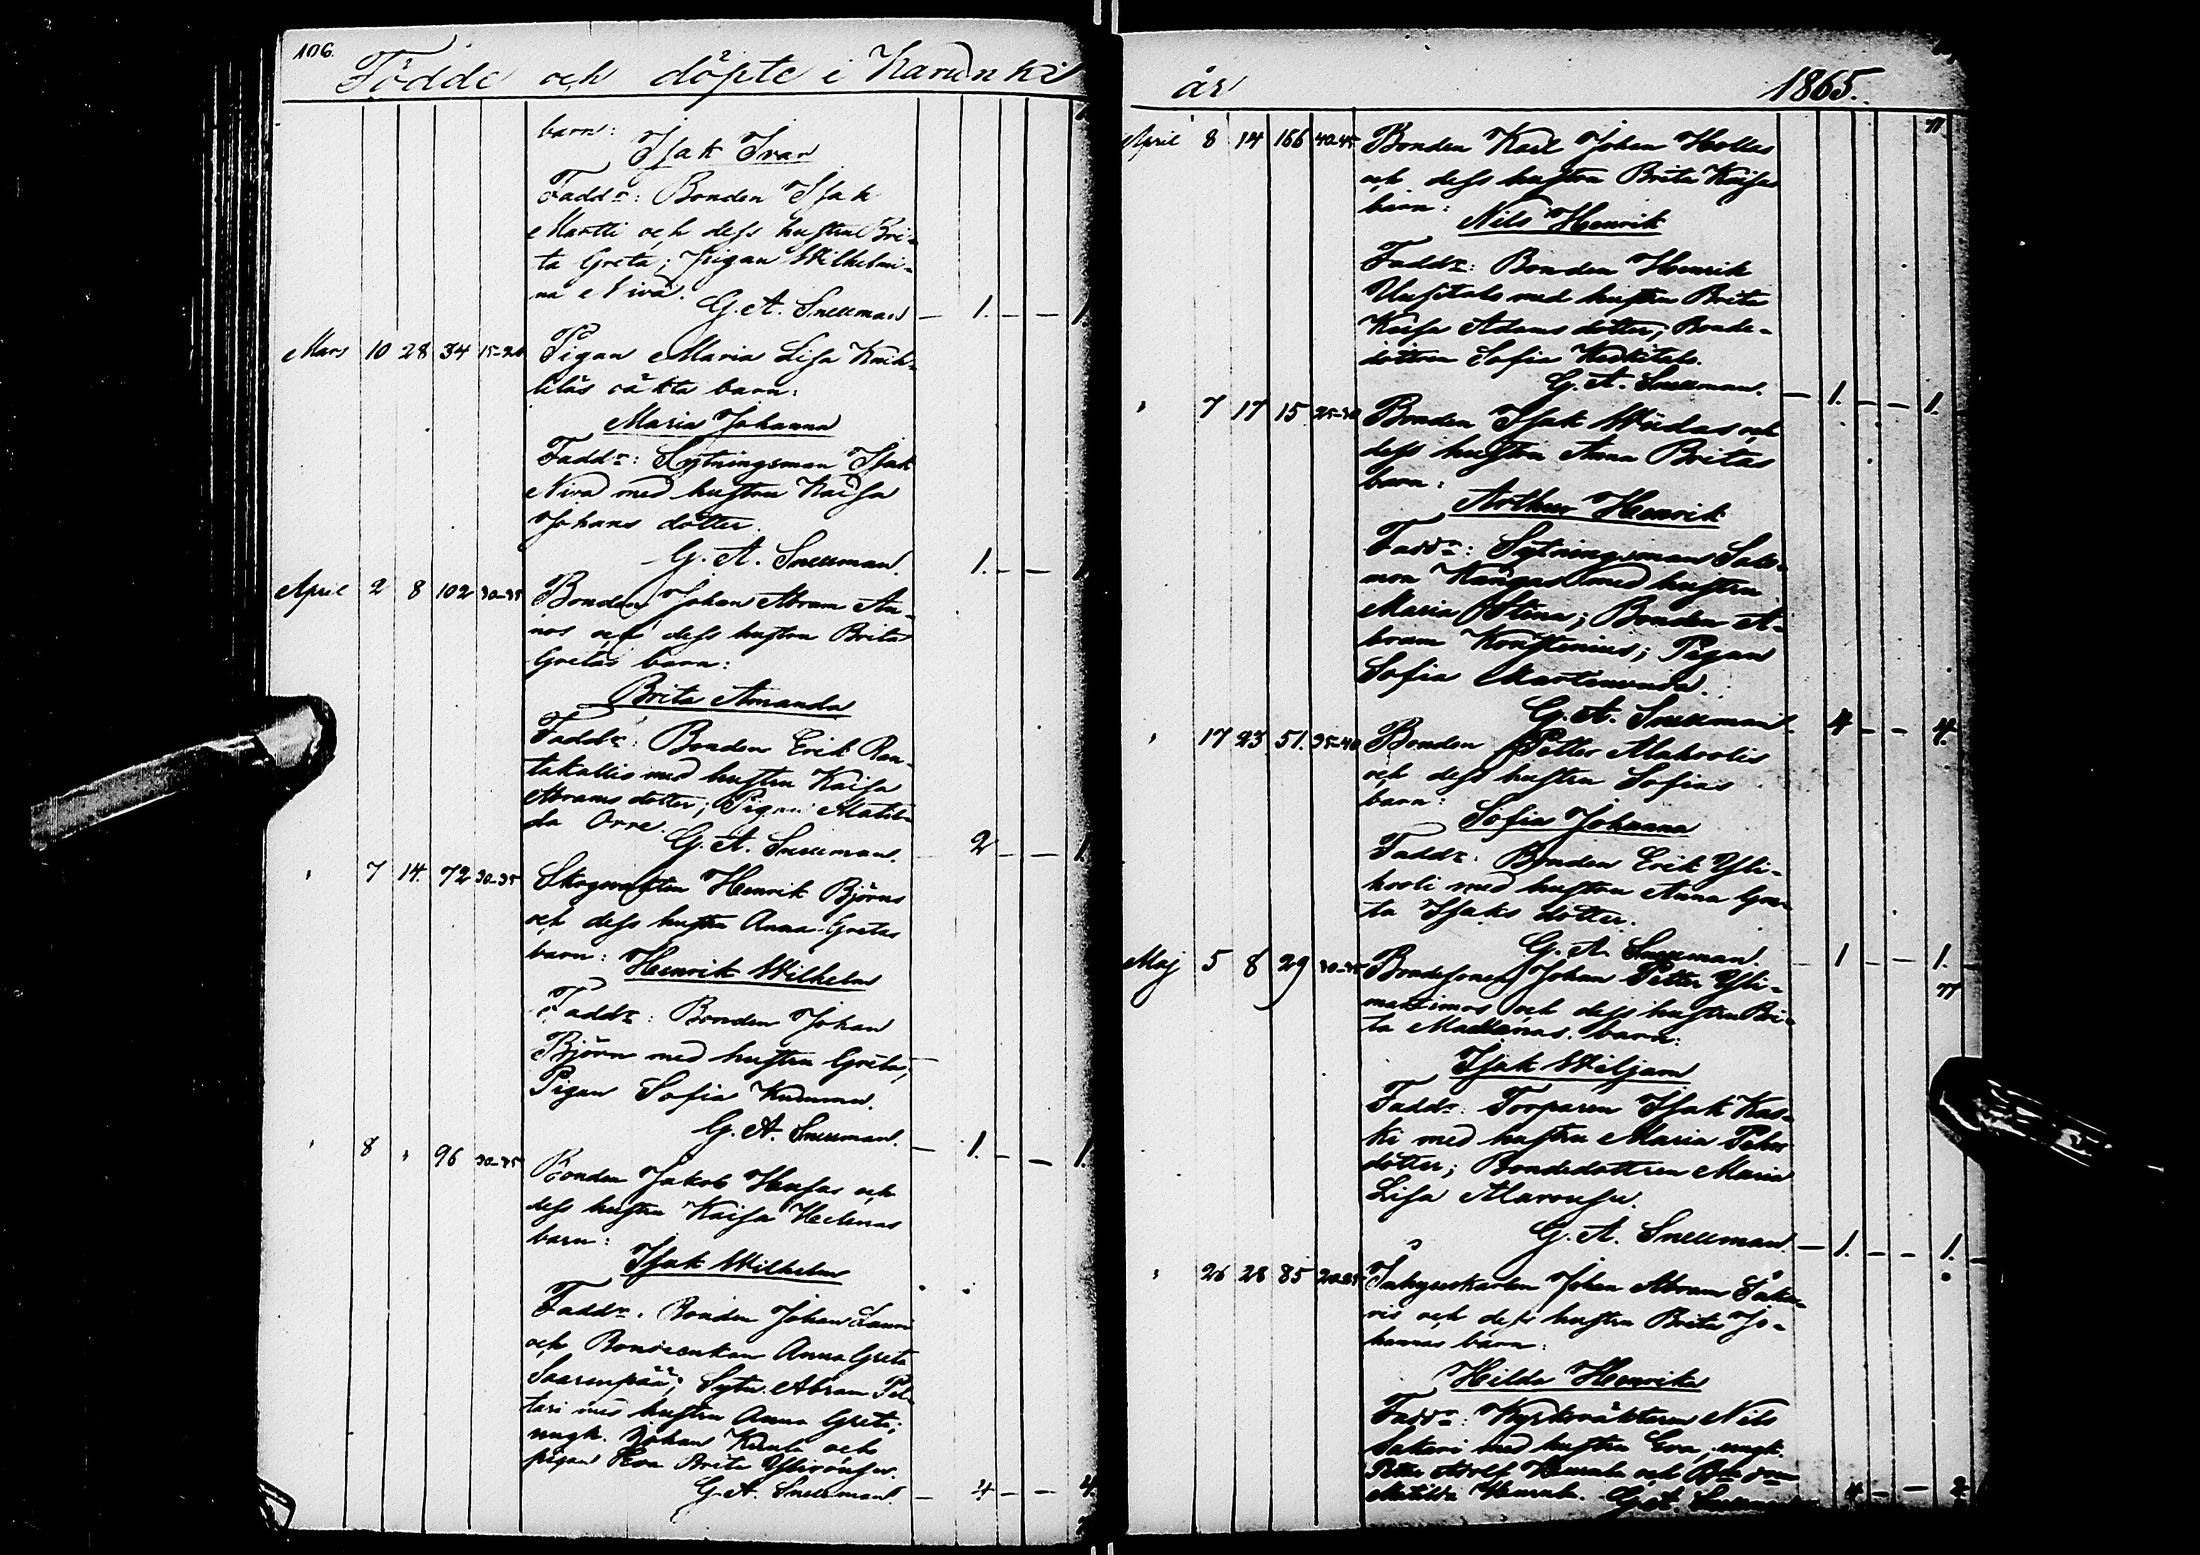 106.
Födde och döpte i Karunki
barn:
Isak Ivar
Faddr: Bonden Isak
Martti och dess hustru Bri-
ta Greta; Pigan Wilhelmi-
na Niva.
G. A. Snellman — 1. — — 1
Mars 10 28 34 15-20 Pigan Maria Lisa
oäkta barn:
Maria Johanna
Faddr: Sytningsman Isak
Niva med hustru Kaisa
Johans dotter.
G. A. Snellman. 1. — — 1
April 2 8 102 30-35 Bonden Johan Abram An-
nos och dess hustru Brita
Gretas barn:
Brita Amanda
Faddr: Bonden Erik Ran-
takallis med hustru Kaisa
Abrams dotter; Pigan Matil-
da Orre.
G. A. Snellman. 2 — — 1
" 7 14. 72 30-35 Skogvaktm Henrik Björns
och dess hustru Anna Gretas
barn: Henrik Wilhelm
Faddr: Bonden Johan
Björn med hustru Greta;
Pigan Sofia
G. A. Snellman. — 1. — — 1.
" 8 " 96 30-35 Bonden Jakob och
dess hustru Kaisa Helenas
barn:
Isak Wilhelm
Faddr. Bonden Johan Lauri
och Bondeenkan Anna Greta
Saarenpää; Sytn. Abram Pel-
tari med hustru Anna Greta;
ungk. Johan och
pigan Eva Brita
G. A. Snellman. — 4. — — 4.
år 1865.
April 8 14 166 40-45 Bonden Karl Johan Hollus
och dess hustru Brita Kaisas
barn:
Nils Henrik
Faddr: Bonden Henrik
Uusitalo med hustru Brita
Kaisa Adams dotter; Bonde-
dottren Sofia
G. A. Snellman. — 1. — — 1.
" 7 17 15 25-30 Bonden Isak och
dess hustru Anna Britas
barn:
Arthur Henrik
Faddr: Sytningsman Salo-
mon Kangas med hustru
Maria Stina; Bonden A-
bram Konstenius; Pigan
Sofia
G. A. Snellman. 4 — — 4.
" 17 23 51. 35-40 Bonden Petter Alakoolis
och dess hustru Sofias
barn:
Sofia Johanna
Faddr: Bonden Erik Yli-
kooli med hustru Anna Gre-
ta Isaks dotter.
G. A. Snellman. — 1 — — 1.
Maj 5 8 29 30-35 Bondesonen Johan Petter Yli-
martimos och dess hustru Bri-
ta Madlenas barn:
Isak Wiljam
Faddr: Torparen Isak Kas-
ki med hustru Maria Pehrs
dotter; Bondedottren Maria
Lisa Alarousu.
G. A. Snellman. — 1. — — 1.
" 26 28 85 20-25 Johan Abram
och dess hustru Brita Jo-
hannas barn:
Hilda Henrika
Faddr: Kyrkväktaren Nils
Sakari med hustru Eva; ungk.
Petter Adolf och
Matilda G. A. Snellman 4 — — 2.